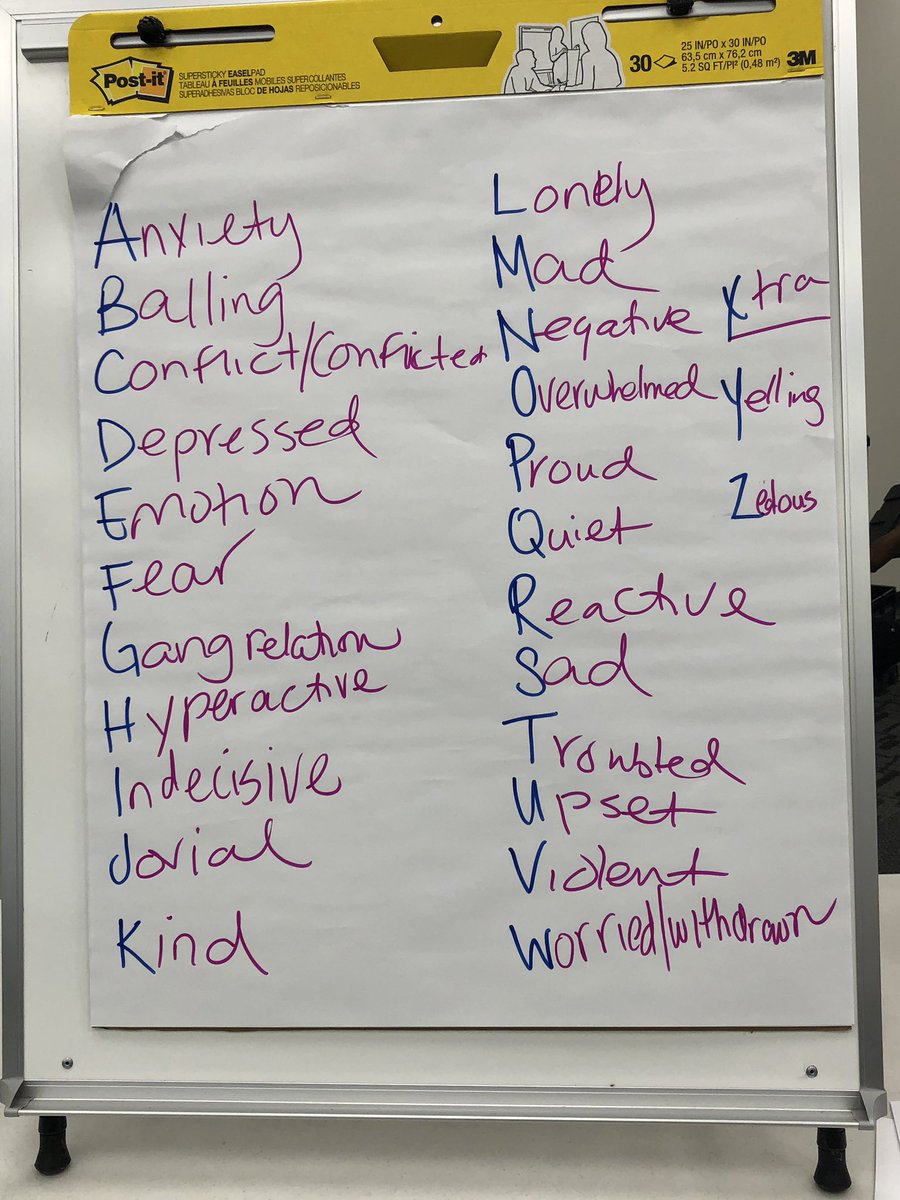 Post-it
SUPERSTICKY EASEL PAD
TABLEAU À FEUILLES MOBILES SUPERCOLLANTES
SUPERADHESIVAS BLOC DE HOJAS REPOSICIONABLES
30
25 IN/PO x 30 IN/PO
63,5 cm x 76,2 cm
5.2 SQ FT/PI² (0,48 m²)
3M
Anxiety
Balling
Conflict/Conflicted
Depressed
Emotion
Fear
Gang relation
Hyperactive
Indecisive
Jovial
Kind
Lonely
Mad
Negative
Overwhelmed
Proud
Quiet
Reactive
Sad
Troubled
Upset
Violent
Worried/withdrawn
Xtra
Yelling
Zealous